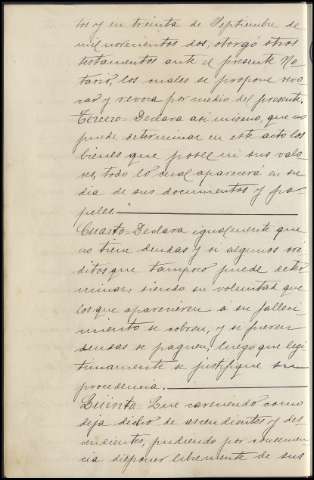 tos y en treinta de Septiembre de
mil novecientos dos, otorgó otros
testamentos ante el presente No-
tario, los cuales se propone revo
car y revoca por medio del presente.
Tercero: Declara asi mismo, que no
puede determinar en este acto los
bienes que posee ni sus valo-
res, todo lo cual aparecerá en su
dia de sus documentos y pa-
peles.
Cuarto: Declara igualmente que
no tiene deudas y si algunos cré
ditos que tampoco puede deter
minar, siendo su voluntad que
los que aparecieren á su falleci
miento se cobren, y se fueren
deudas se paguen, luego que legi
timamente se justifique su
procedencia.
Quinto: Que careciendo como
deja dicho de ascendientes y des
cendientes, pudiendo por consecuen
cia disponer libremente de sus